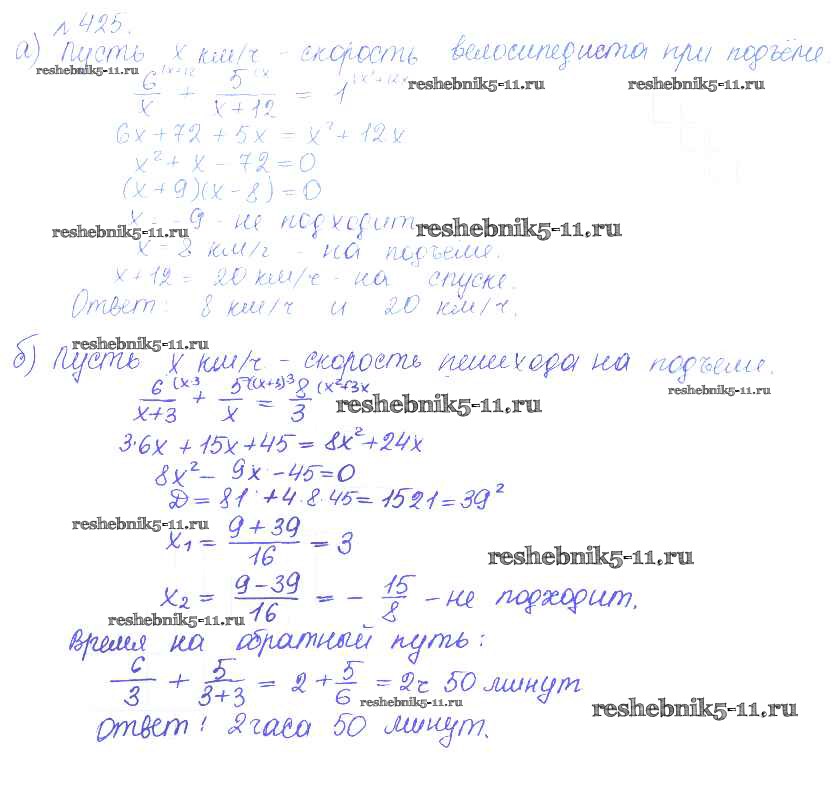 № 425.
а) Пусть x км/ч - скорость велосипедиста при подъёме.
reshebnik5-11.ru
6/x + 5/(x+12) = 1
reshebnik5-11.ru reshebnik5-11.ru
6x + 72 + 5x = x² + 12x
x² + x - 72 = 0
(x + 9)(x - 8) = 0
x = -9 - не подходит
reshebnik5-11.ru reshebnik5-11.ru
x = 8 км/ч - на подъёме.
x + 12 = 20 км/ч - на спуске.
Ответ: 8 км/ч и 20 км/ч.
reshebnik5-11.ru
б) Пусть x км/ч - скорость пешехода на подъеме.
reshebnik5-11.ru
6/(x+3) (x·3 + 5/x ((x+3)3 = 8/3 (x²+3x
reshebnik5-11.ru
3·6x + 15x + 45 = 8x² + 24x
8x² - 9x - 45 = 0
Д = 81 + 4·8·45 = 1521 = 39²
reshebnik5-11.ru
x₁ = (9 + 39)/16 = 3
reshebnik5-11.ru
x₂ = (9 - 39)/16 = - 15/8 - не подходит.
reshebnik5-11.ru
Время на обратный путь:
6/3 + 5/(3+3) = 2 + 5/6 = 2ч 50 минут
reshebnik5-11.ru reshebnik5-11.ru
Ответ: 2 часа 50 минут.